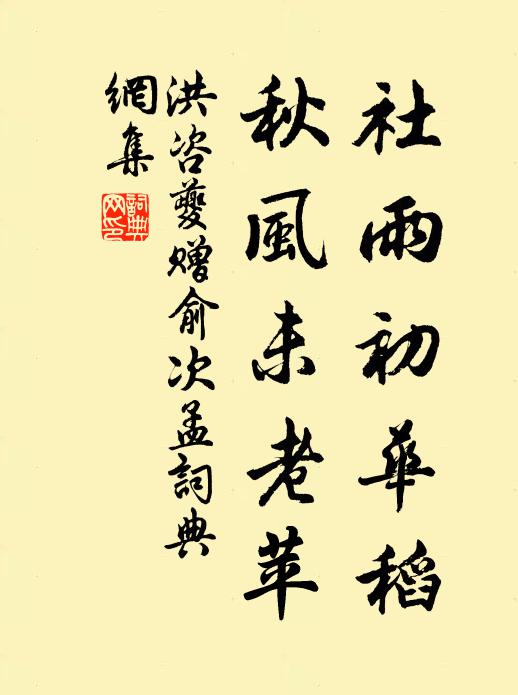 社雨初華稻
秋風未老苹
洪咨夔贈俞次孟詞典
網集
詞典
网印